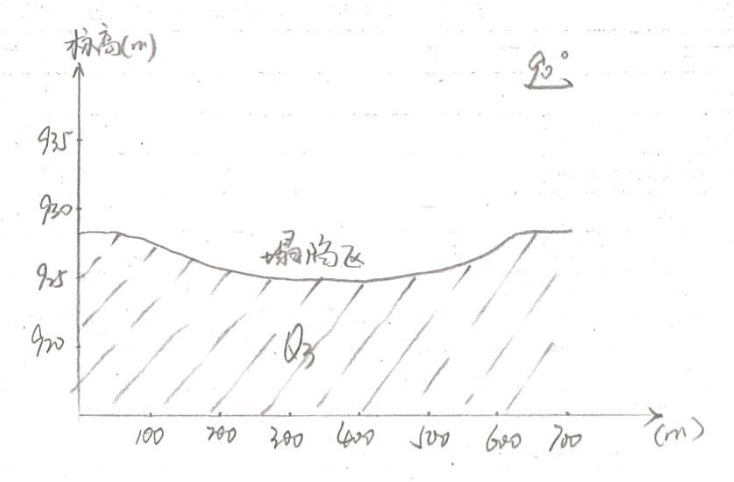 标高(m)
90°
935
930
塌陷区
925
920
Q3
100 200 300 400 500 600 700 (m)